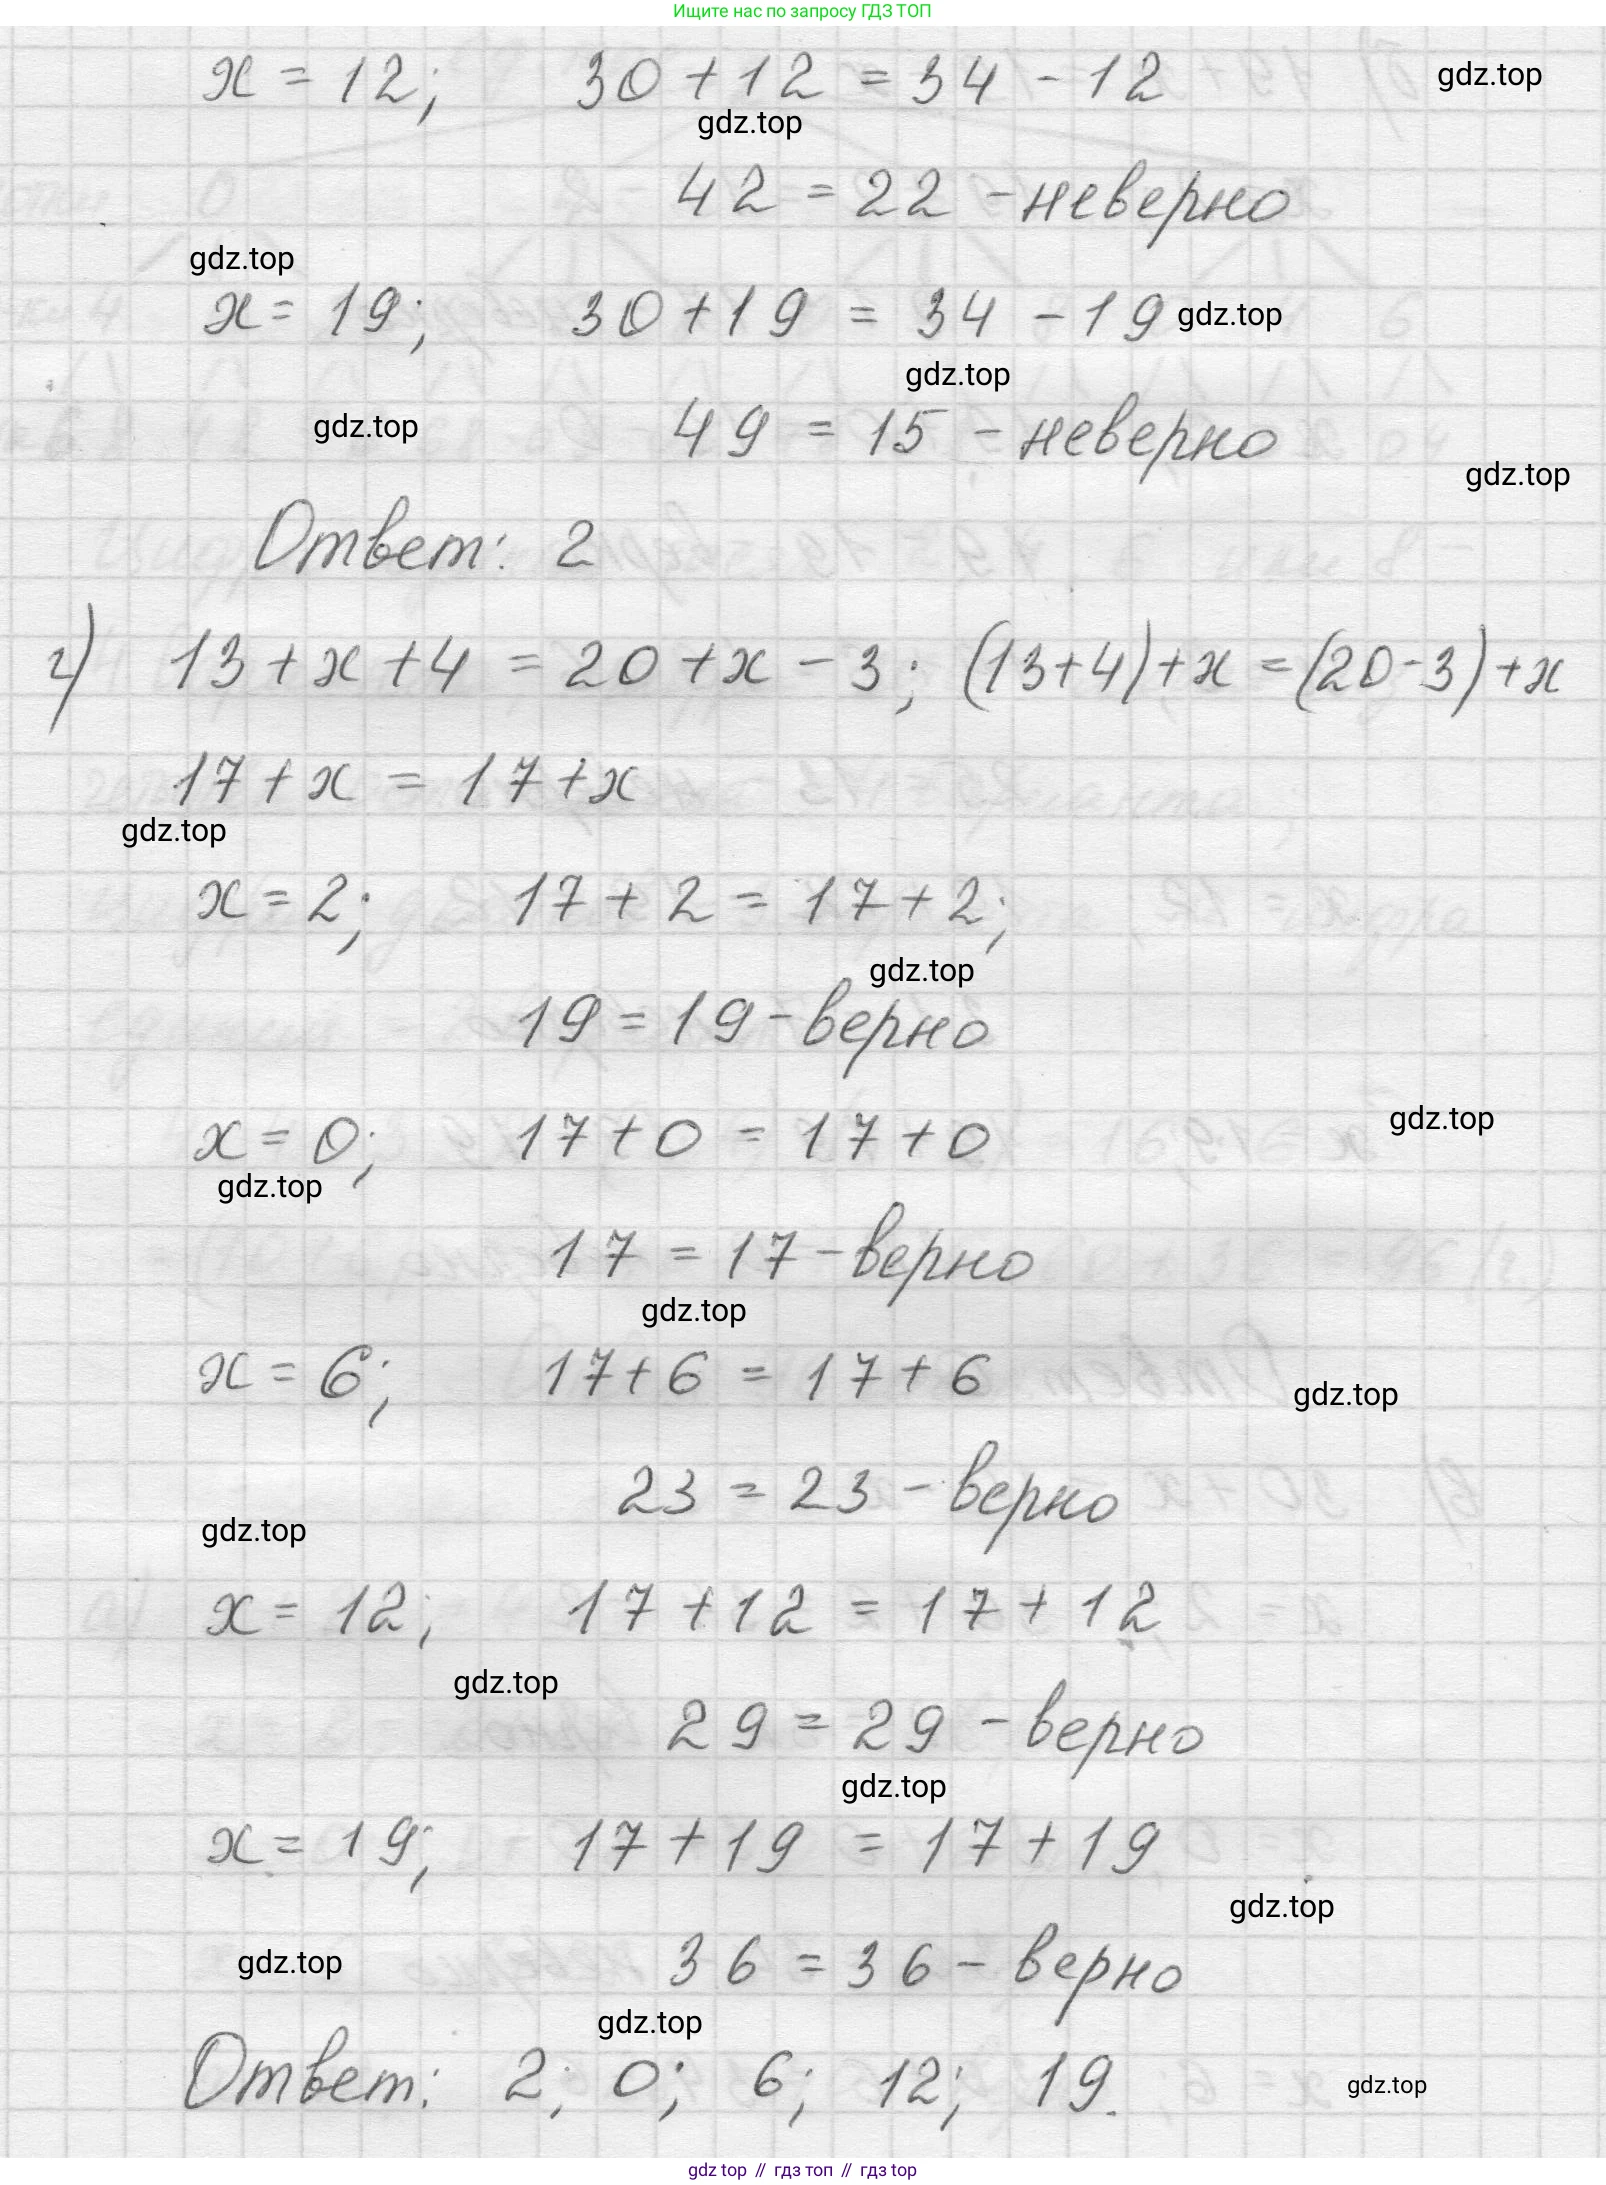 Ищите нас по запросу ГДЗ ТОП
x = 12; 30 + 12 = 34 - 12
gdz.top
gdz.top
42 = 22 - неверно
gdz.top
x = 19; 30 + 19 = 34 - 19
gdz.top
gdz.top
gdz.top
49 = 15 - неверно
gdz.top
Ответ: 2
г) 13 + x + 4 = 20 + x - 3; (13+4)+x = (20-3)+x
17 + x = 17 + x
gdz.top
x = 2; 17 + 2 = 17 + 2;
gdz.top
19 = 19 - верно
x = 0; 17 + 0 = 17 + 0
gdz.top
gdz.top
17 = 17 - верно
gdz.top
x = 6; 17 + 6 = 17 + 6
gdz.top
23 = 23 - верно
gdz.top
x = 12; 17 + 12 = 17 + 12
gdz.top
29 = 29 - верно
gdz.top
x = 19; 17 + 19 = 17 + 19
gdz.top
gdz.top
36 = 36 - верно
gdz.top
Ответ: 2; 0; 6; 12; 19.
gdz.top
gdz top // гдз топ // гдз top